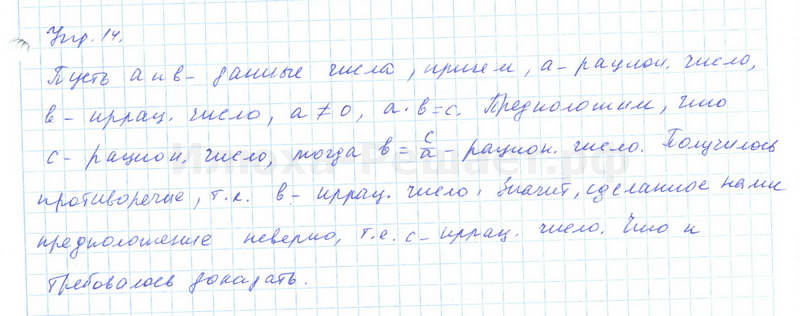 Упр. 14.
Пусть a и в - данные числа, причем, a - рацион. число,
в - иррац. число, a ≠ 0, a · в = c. Предположим, что
c - рацион. число, тогда в = c/a - рацион. число. Получилось
противоречие, т.к. в - иррац. число. Значит, сделанное нами
предположение неверно, т.е. c - иррац. число. Что и
требовалось доказать.